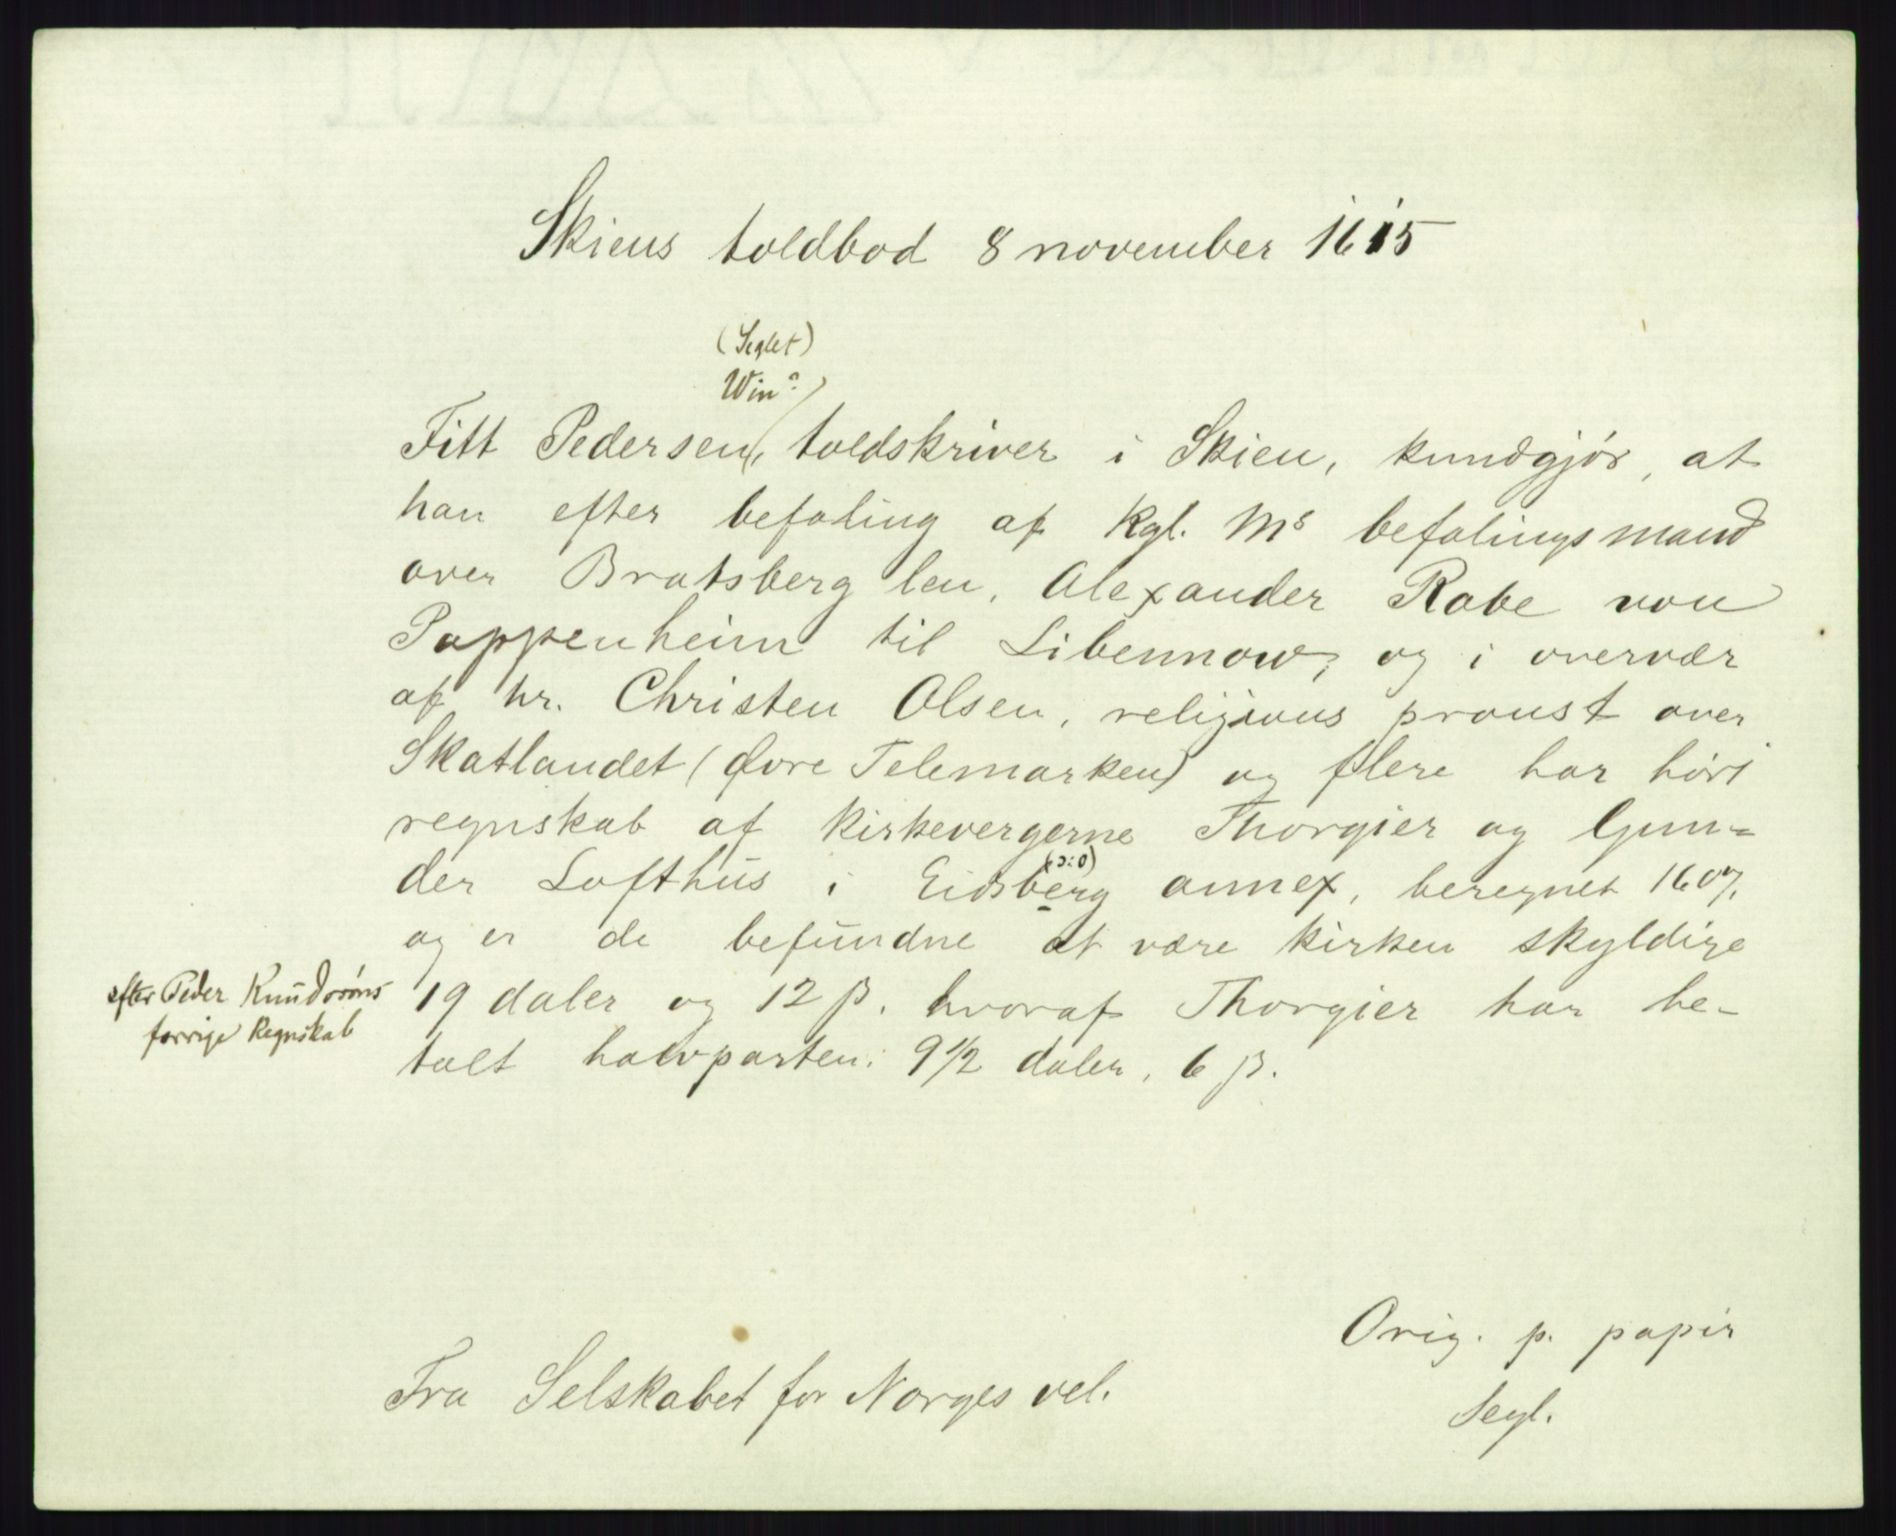 Skiens toldbod 8 november 1615
(Seglet)
Win?
Fitt Pedersen, toldskriver i Skien, kundgjör, at
han efter befaling af kgl. Ms befalingsmand
over Bratsberg len, Alexander Rabe von
Pappenheim til Libennow, og i overvær
af hr. Christen Olsen, religious proust over
Skatlandet (Øvre Telemarken) og flere har hört
regnskab af kirkevergerne Thorgier og Gun-
der Lofthus i Eidsberg (ɔ: o) annex, beregnet 1607,
og er de befundne at være kirken skyldige
efter Peder Knudsöns
forrige Regnskab
19 daler og 12 β. hvoraf Thorgier har be-
talt halvparten: 9 1/2 daler, 6 β.
Orig. p. papir
Segl.
Fra Selskabet for Norges vel.